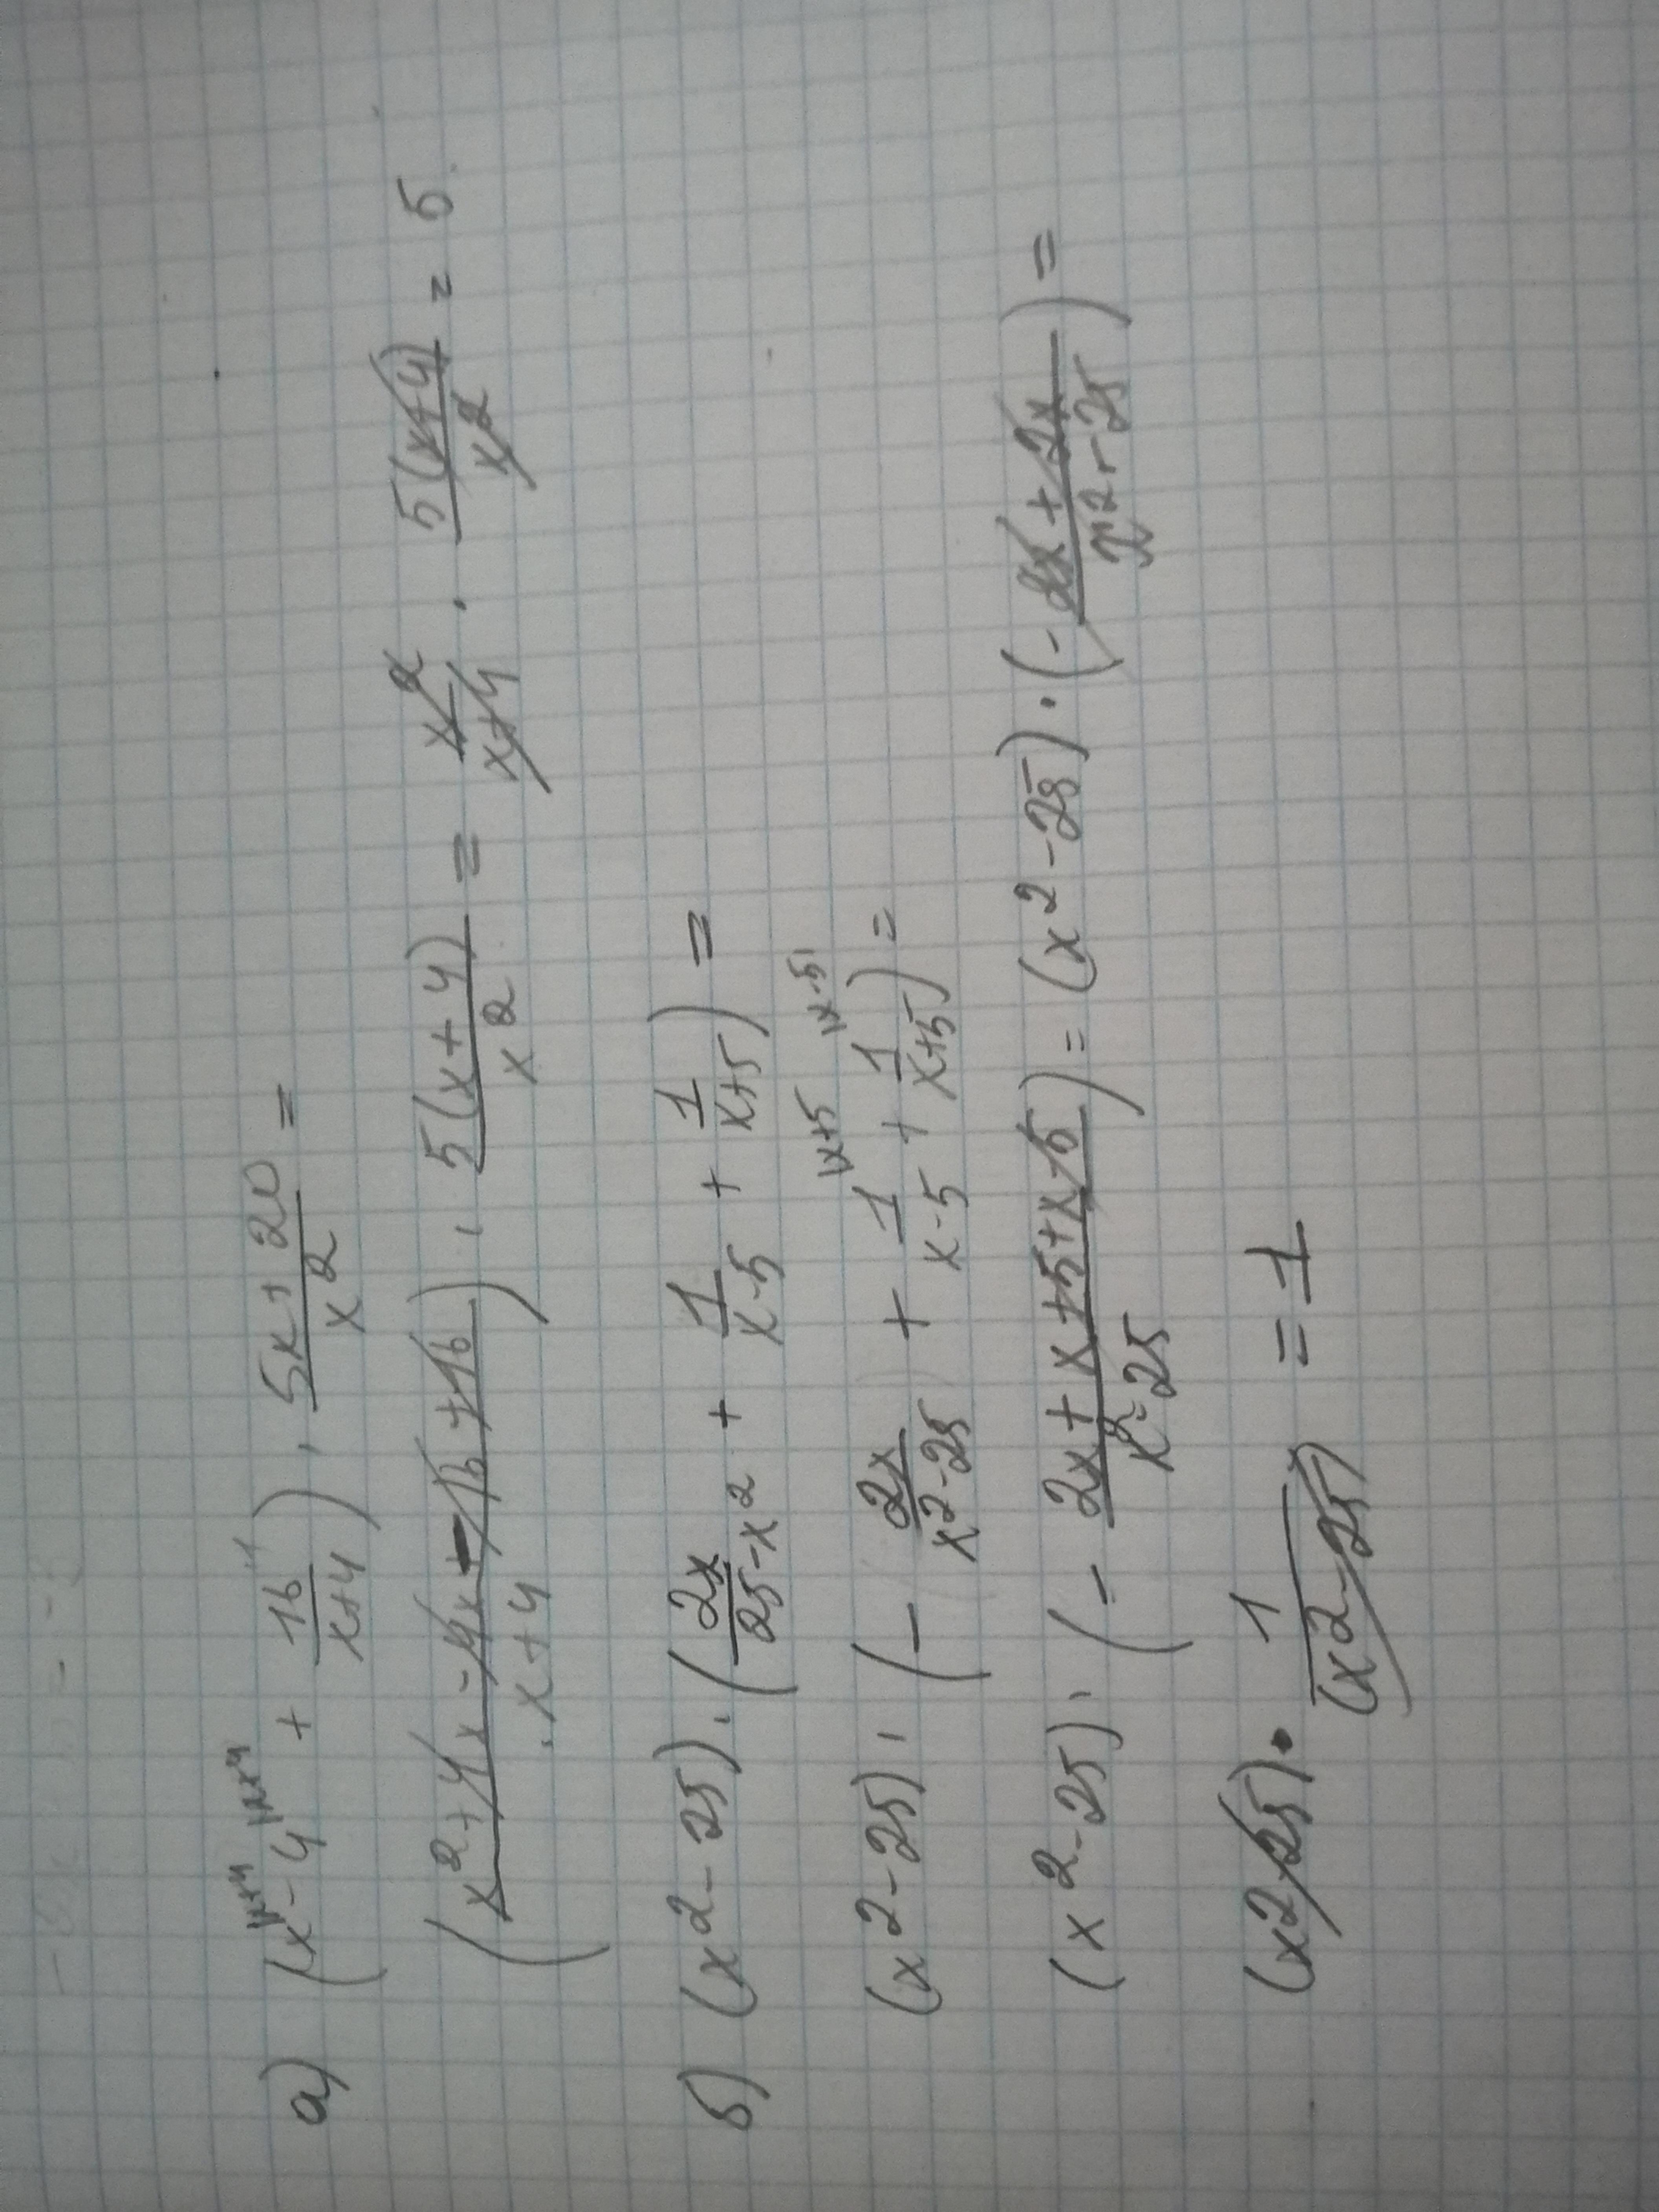 а) (x - 4 |x+4 |x+4 + 16/(x+4)) · (5x + 20)/x² =
((x² + 4x - 4x - 16 + 16)/(x+4)) · 5(x+4)/x² = x²/(x+4) · 5(x+4)/x² = 5
б) (x² - 25) · (2x/(25 - x²) + 1/(x-5) + 1/(x+5)) =
(x² - 25) · (- 2x/(x² - 25) + 1/(x-5) |x+5 + 1/(x+5) |x-5) =
(x² - 25) · (- (2x + x + 5 + x - 5)/(x² - 25)) = (x² - 25) · (- (2x + 2x)/(x² - 25)) =
(x² - 25) · 1/(x² - 25) = 1